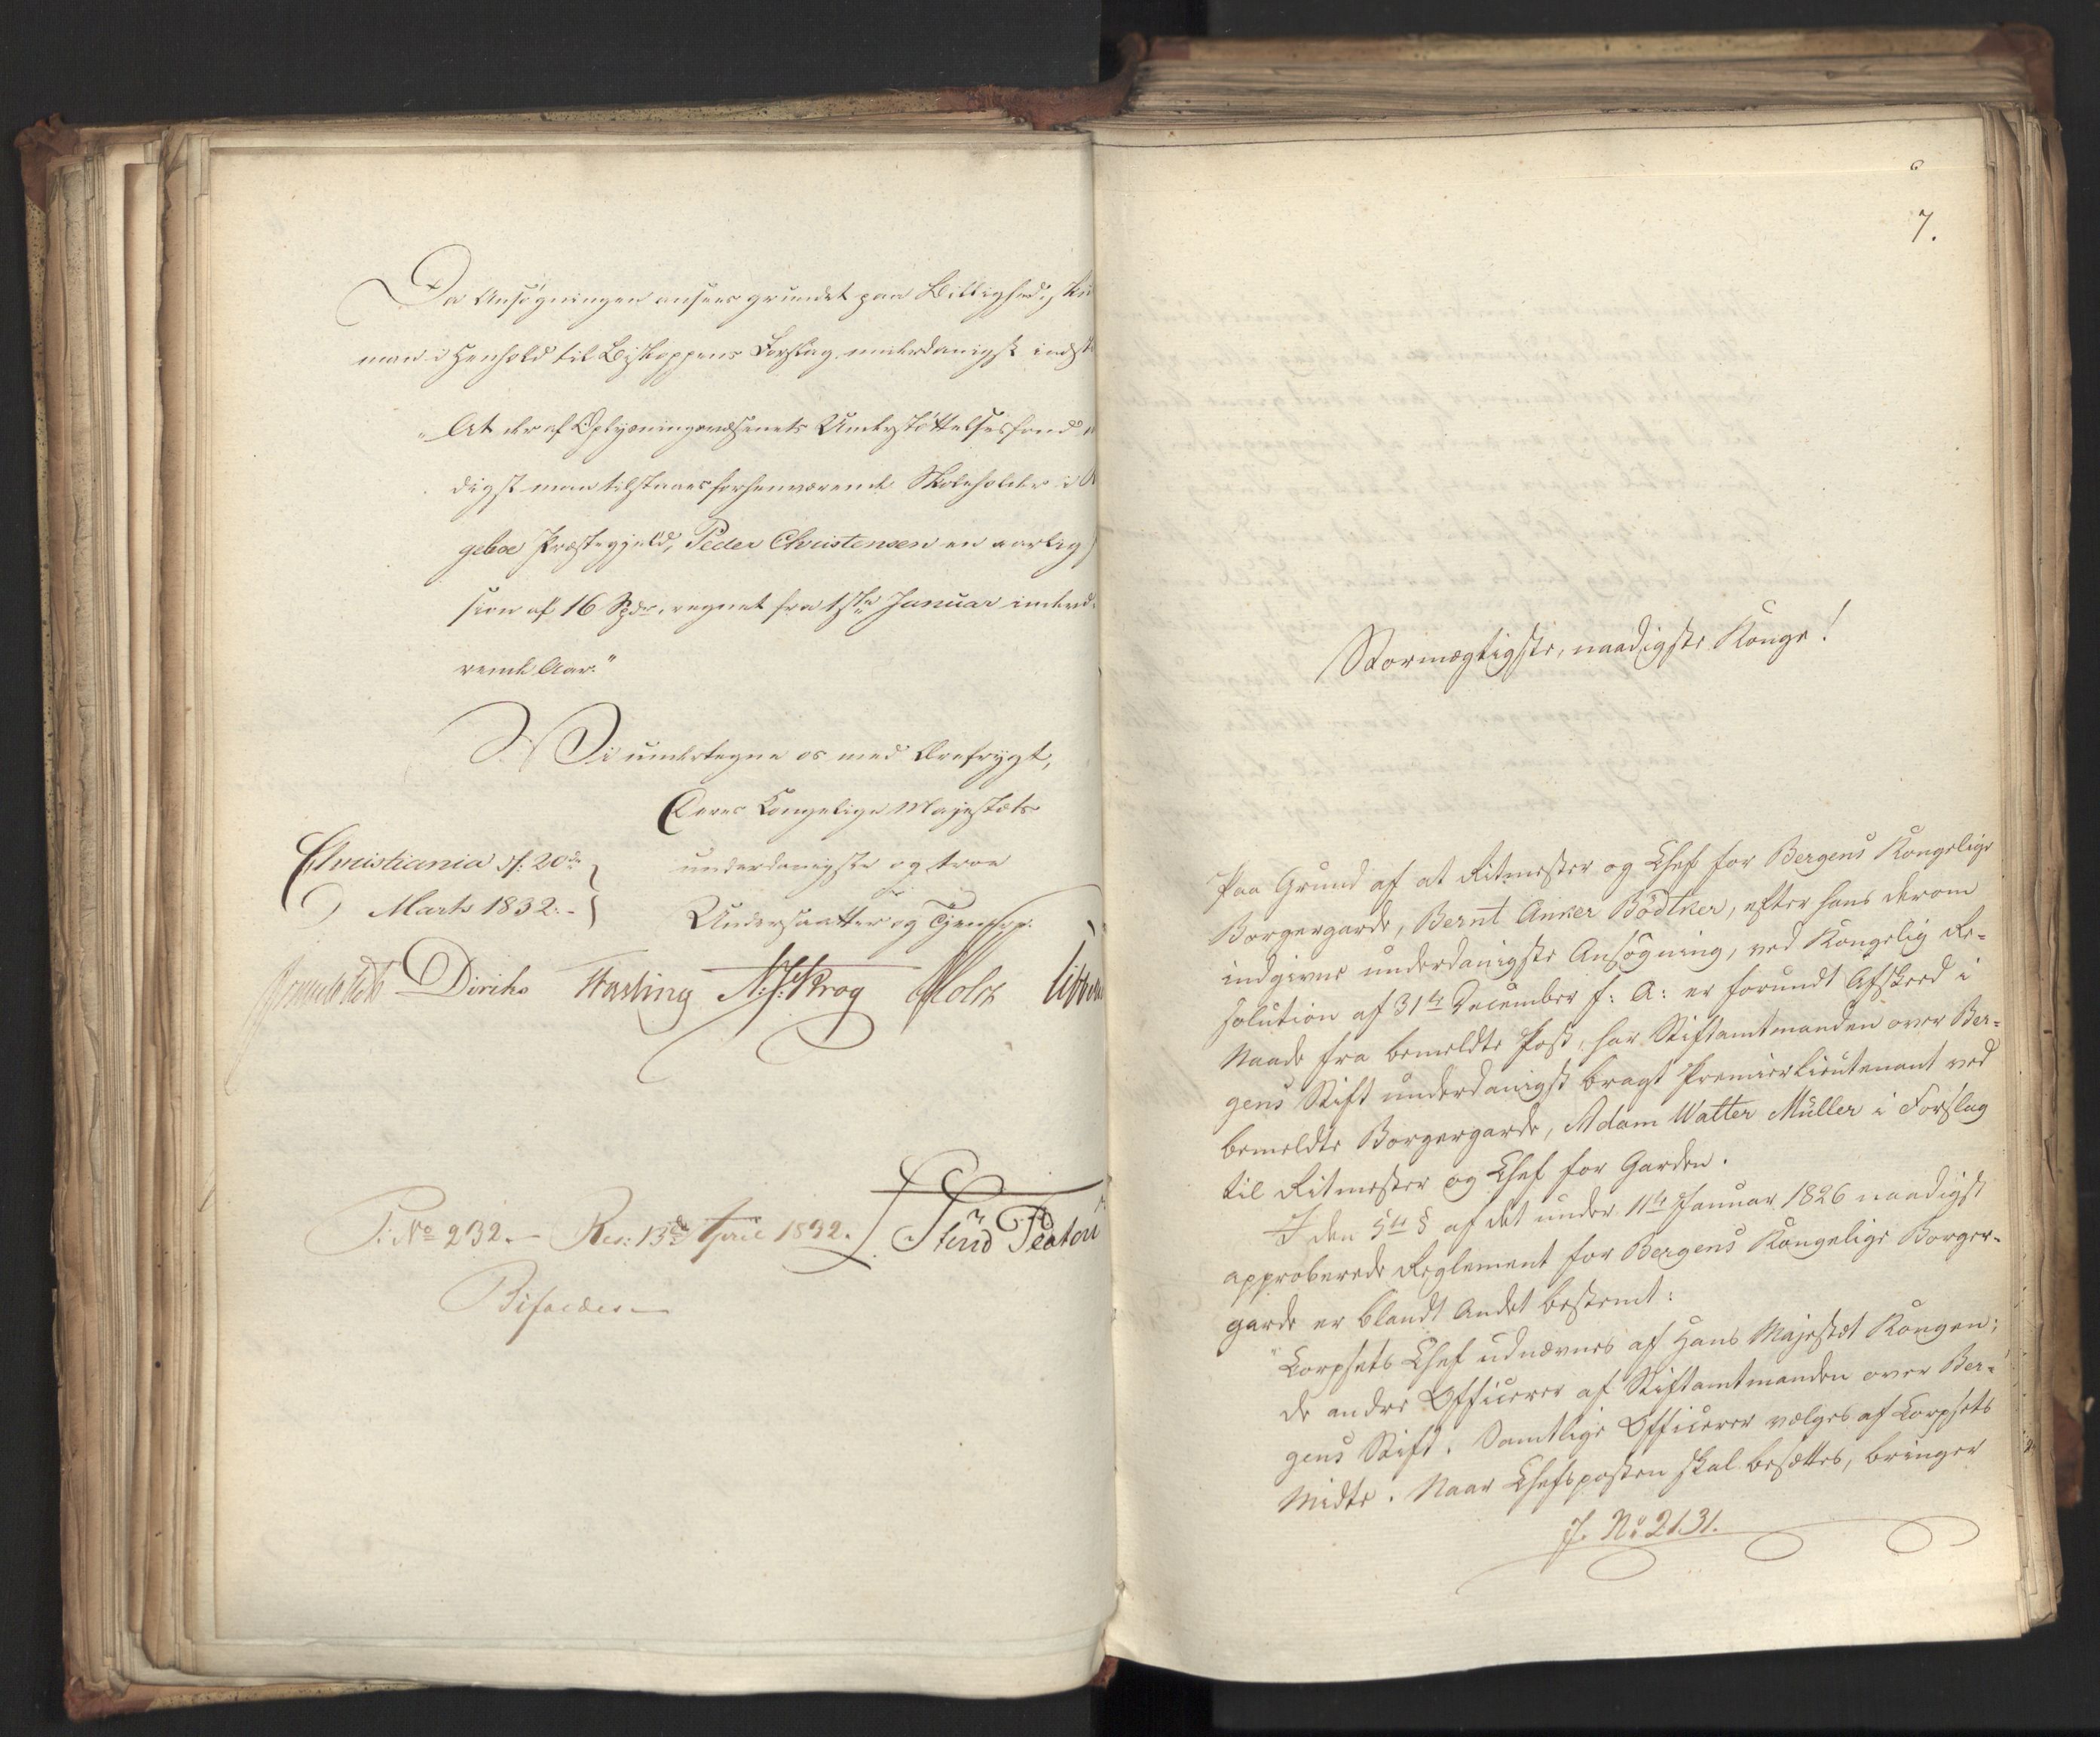 Da Ansøgningen ansees grundet paa Billighed, sku
man i Henhold til Biskoppens Forslag underdanigst indst
"At der af Oplysningsvæsenets Understøttelsesfond
digst maa tilstaaes forhenværende Skoleholder i
geboe Præstegjeld, Peder Christensen en aarlig
sion af 16 Spdr. regnet fra 1ste Januar indevæ
rende Aar."
Vi undertegne os med Ærefrygt,
Deres Kongelige Majestæts
Christiania d: 20de
underdanigste og troe
Marts 1832.-
Undersaatter og Tjenere.
Diriks Fasting Krog Holst
P. No 232. - Res: 13de April 1832.
Bifaldes
7.
Stormægtigste, naadigste Konge!
Paa Grund af at Ritmester og Chef for Bergens Kongelige
Borgergarde, Bernt Anker Bödtker, efter hans derom
indgivne underdanigste Ansøgning, ved Kongelig Re-
solution af 31te December f: A: er forundt Afskeed i
Naade fra bemeldte Post, har Stiftamtmanden over Ber-
gens Stift underdanigst bragt Premierlieutenant ved
bemeldte Borgergarde, Adam Walter Müller i Forslag
til Ritmester og Chef for Garden.
I den 5te § af det under 11te Januar 1826 naadigst
approberede Reglement for Bergens Kongelige Borger-
garde er blandt Andet bestemt:
"Corpsets Chef udnævnes af Hans Majestæt Kongen;
de andre Officerer af Stiftamtmanden over Ber-
gens Stift. Samtlige Officerer vælges af Corpsets
Midte. Naar Chefsposten skal besættes, bringer
J. No 2131.